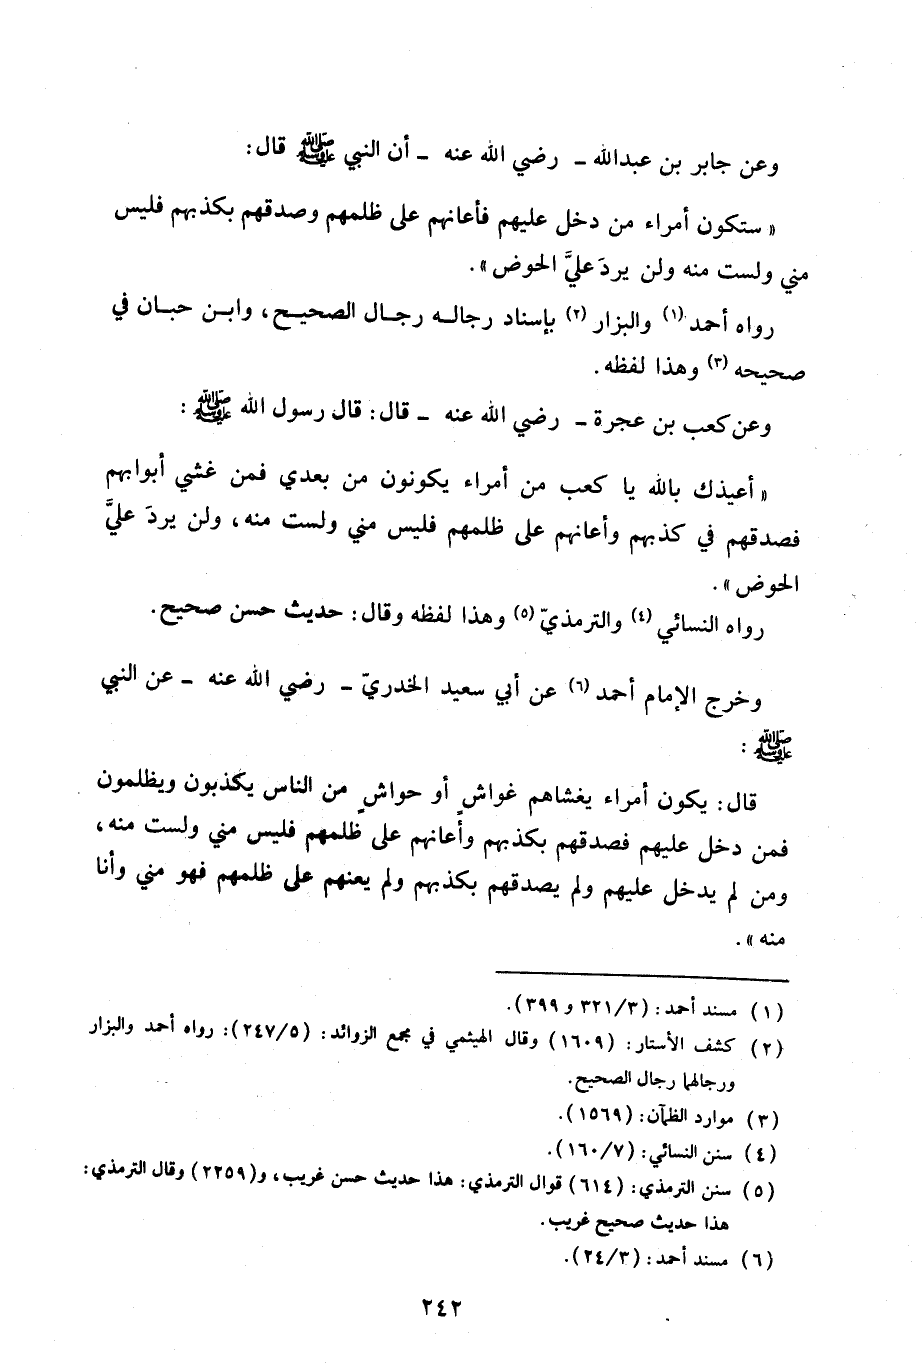 وعن جابر بن عبدالله ـ رضي الله عنه ـ أن النبي ﷺ قال:
« ستكون أمراء من دخل عليهم فأعانهم على ظلمهم وصدقهم بكذبهم فليس
مني ولست منه ولن يردَ عليَّ الحوض ».
رواه أحمد (١) والبزار (٢) بإسناد رجاله رجال الصحيح، وابن حبان في
صحيحه (٣) وهذا لفظه.
وعن كعب بن عجرة ـ رضي الله عنه ـ قال: قال رسول الله ﷺ:
« أعيذك بالله يا كعب من أمراء يكونون من بعدي فمن غشي أبوابهم
فصدقهم في كذبهم وأعانهم على ظلمهم فليس مني ولست منه، ولن يردَ عليَّ
الحوض ».
رواه النسائي (٤) والترمذيّ (٥) وهذا لفظه وقال: حديث حسن صحيح.
وخرج الإمام أحمد (٦) عن أبي سعيد الخدريّ ـ رضي الله عنه ـ عن النبي
ﷺ:
قال: يكون أمراء يغشاهم غواشٍ أو حواشٍ من الناس يكذبون ويظلمون
فمن دخل عليهم فصدقهم بكذبهم وأعانهم على ظلمهم فليس مني ولست منه،
ومن لم يدخل عليهم ولم يصدقهم بكذبهم ولم يعنهم على ظلمهم فهو مني وأنا
منه ».
(١) مسند أحمد: (٣٢١/٣ و ٣٩٩).
(٢) كشف الأستار: (١٦٠٩) وقال الهيثمي في مجمع الزوائد: (٢٤٧/٥): رواه أحمد والبزار
ورجالهما رجال الصحيح.
(٣) موارد الظمآن: (١٥٦٩).
(٤) سنن النسائي: (١٦٠/٧).
(٥) سنن الترمذي: (٦١٤) قوال الترمذي: هذا حديث حسن غريب، و(٢٢٥٩) وقال الترمذي:
هذا حديث صحيح غريب.
(٦) مسند أحمد: (٢٤/٣).
٢٤٢